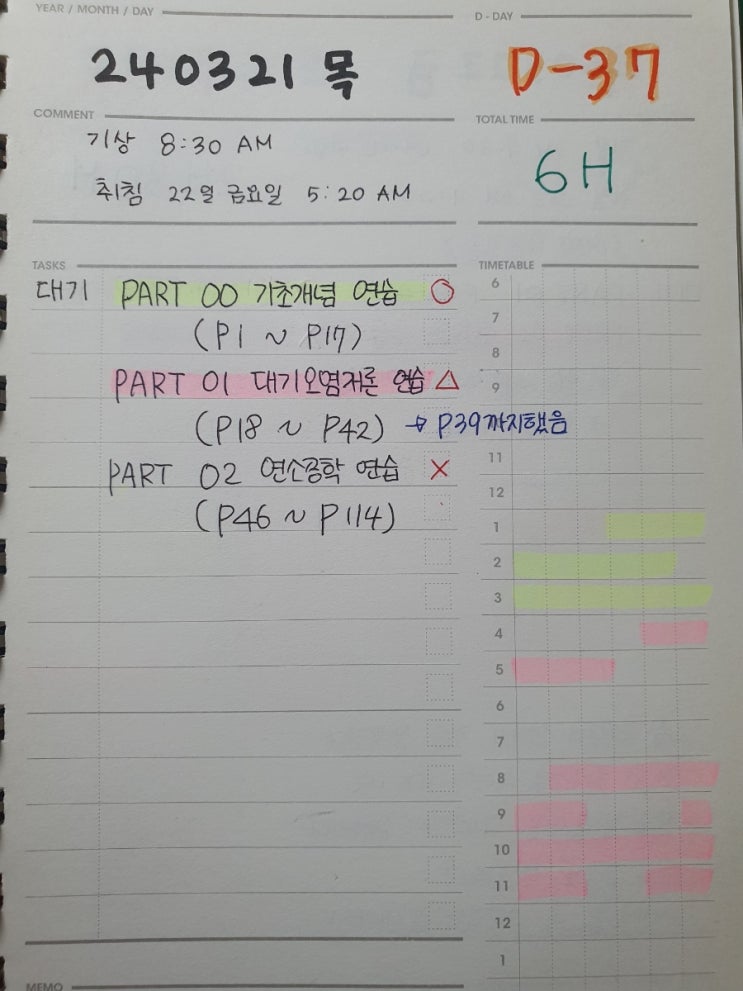 YEAR / MONTH / DAY
D - DAY
240321 목
D-37
COMMENT
TOTAL TIME
기상 8:30 AM
취침 22일 금요일 5:20 AM
6H
TASKS
TIMETABLE
대기 PART 00 기초개념 연습 ○
(P1 ~ P17)
PART 01 대기오염개론 연습 △
(P18 ~ P42) → P39까지했음
PART 02 연소공학 연습 ×
(P46 ~ P114)
6
7
8
9
11
12
1
2
3
4
5
6
7
8
9
10
11
12
1
MEMO